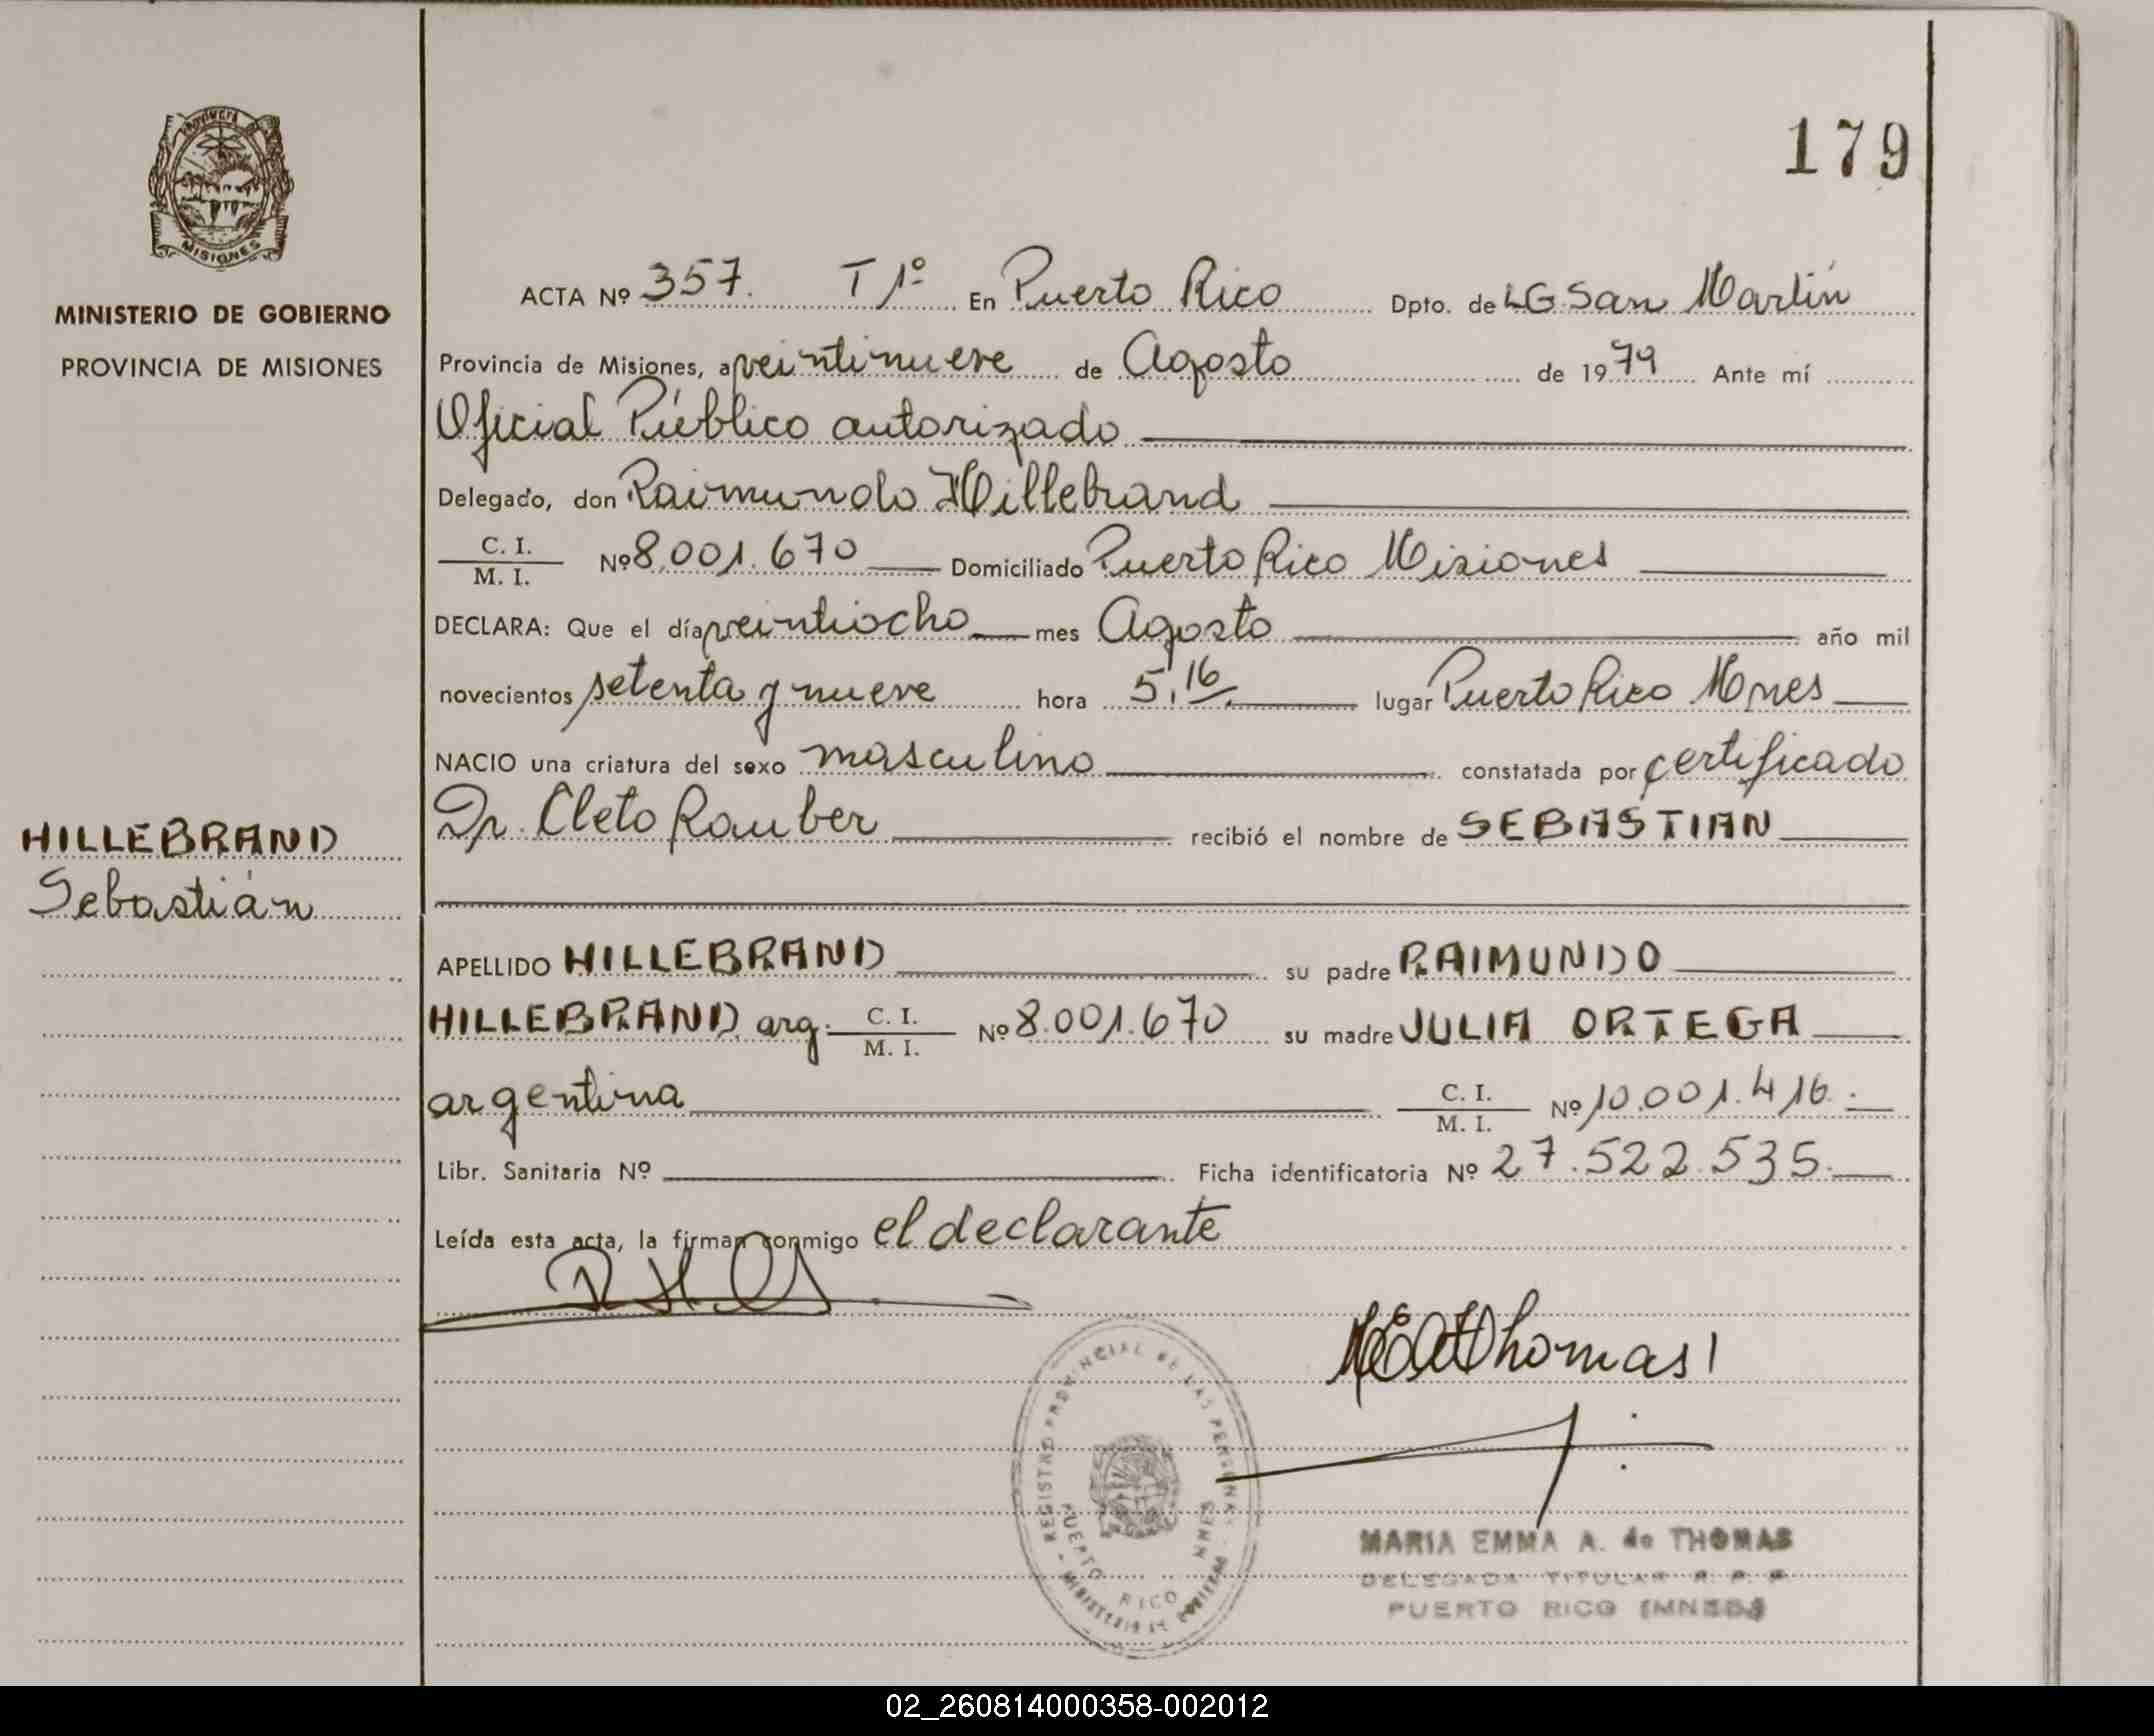 179
PROVINCIA
MISIONES
MINISTERIO DE GOBIERNO
PROVINCIA DE MISIONES
HILLEBRAND
Sebastián
ACTA Nº 357. T 1º En Puerto Rico Dpto. de LG San Martín
Provincia de Misiones, a veintinueve de Agosto de 1979 Ante mí
Oficial Público autorizado
Delegado, don Raimundo Hillebrand
C. I.
M. I. Nº 8.001.670 Domiciliado Puerto Rico Misiones
DECLARA: Que el día veintiocho mes Agosto año mil
novecientos setenta y nueve hora 5,16. lugar Puerto Rico Mnes
NACIO una criatura del sexo masculino constatada por certificado
Dr. Cleto Rauber recibió el nombre de SEBASTIAN
APELLIDO HILLEBRAND su padre RAIMUNDO
HILLEBRAND arg. C. I.
M. I. Nº 8.001.670 su madre JULIA ORTEGA
argentina C. I.
M. I. Nº 10.001.416.
Libr. Sanitaria Nº Ficha identificatoria Nº 27.522.535.
Leída esta acta, la firman conmigo el declarante
Thomas
REGISTRO PROVINCIAL DE LAS PERSONAS
PUERTO RICO MNES
MARIA EMMA A. de THOMAS
DELEGADA TITULAR R. P. P.
PUERTO RICO (MNES)
02_260814000358-002012